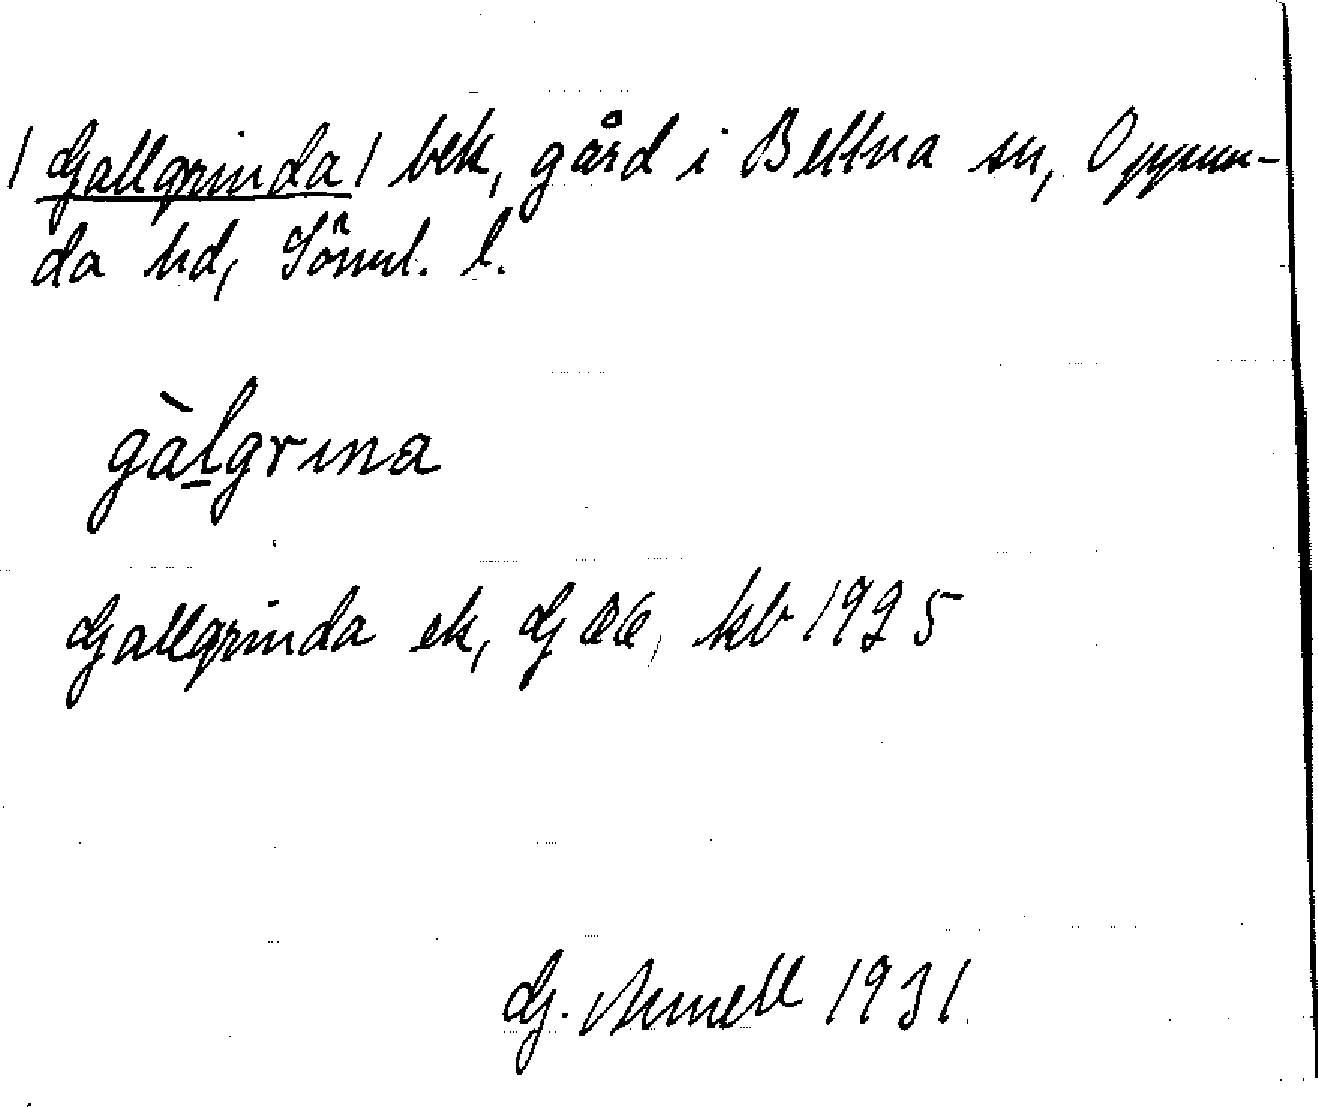 / Gallgrinda / bek, gård i Bettna sn, Oppun-
da hd, Söml. l.
gàlgrına
Gallgrinda ek, GEK, kb 1925
G. Arnell 1931